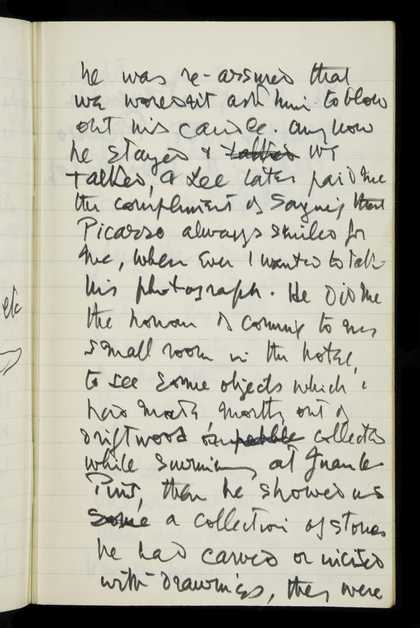 he was re-assured that
we wouldnt ask him to blow
out his candle. Anyhow
he stayed & talked we
talked, & Lee later paid me
the compliment of saying that
Picasso always smiled for
me, when ever I wanted to take
his photograph. He did me
the honour of coming to my
small room in the hotel,
to see some objects which I
had made, mostly out of
driftwood or pebble collected
while swimming at Juan les
Pins, then he showed us
some a collection of stones
he had carved or incised
with drawings, they were
etc